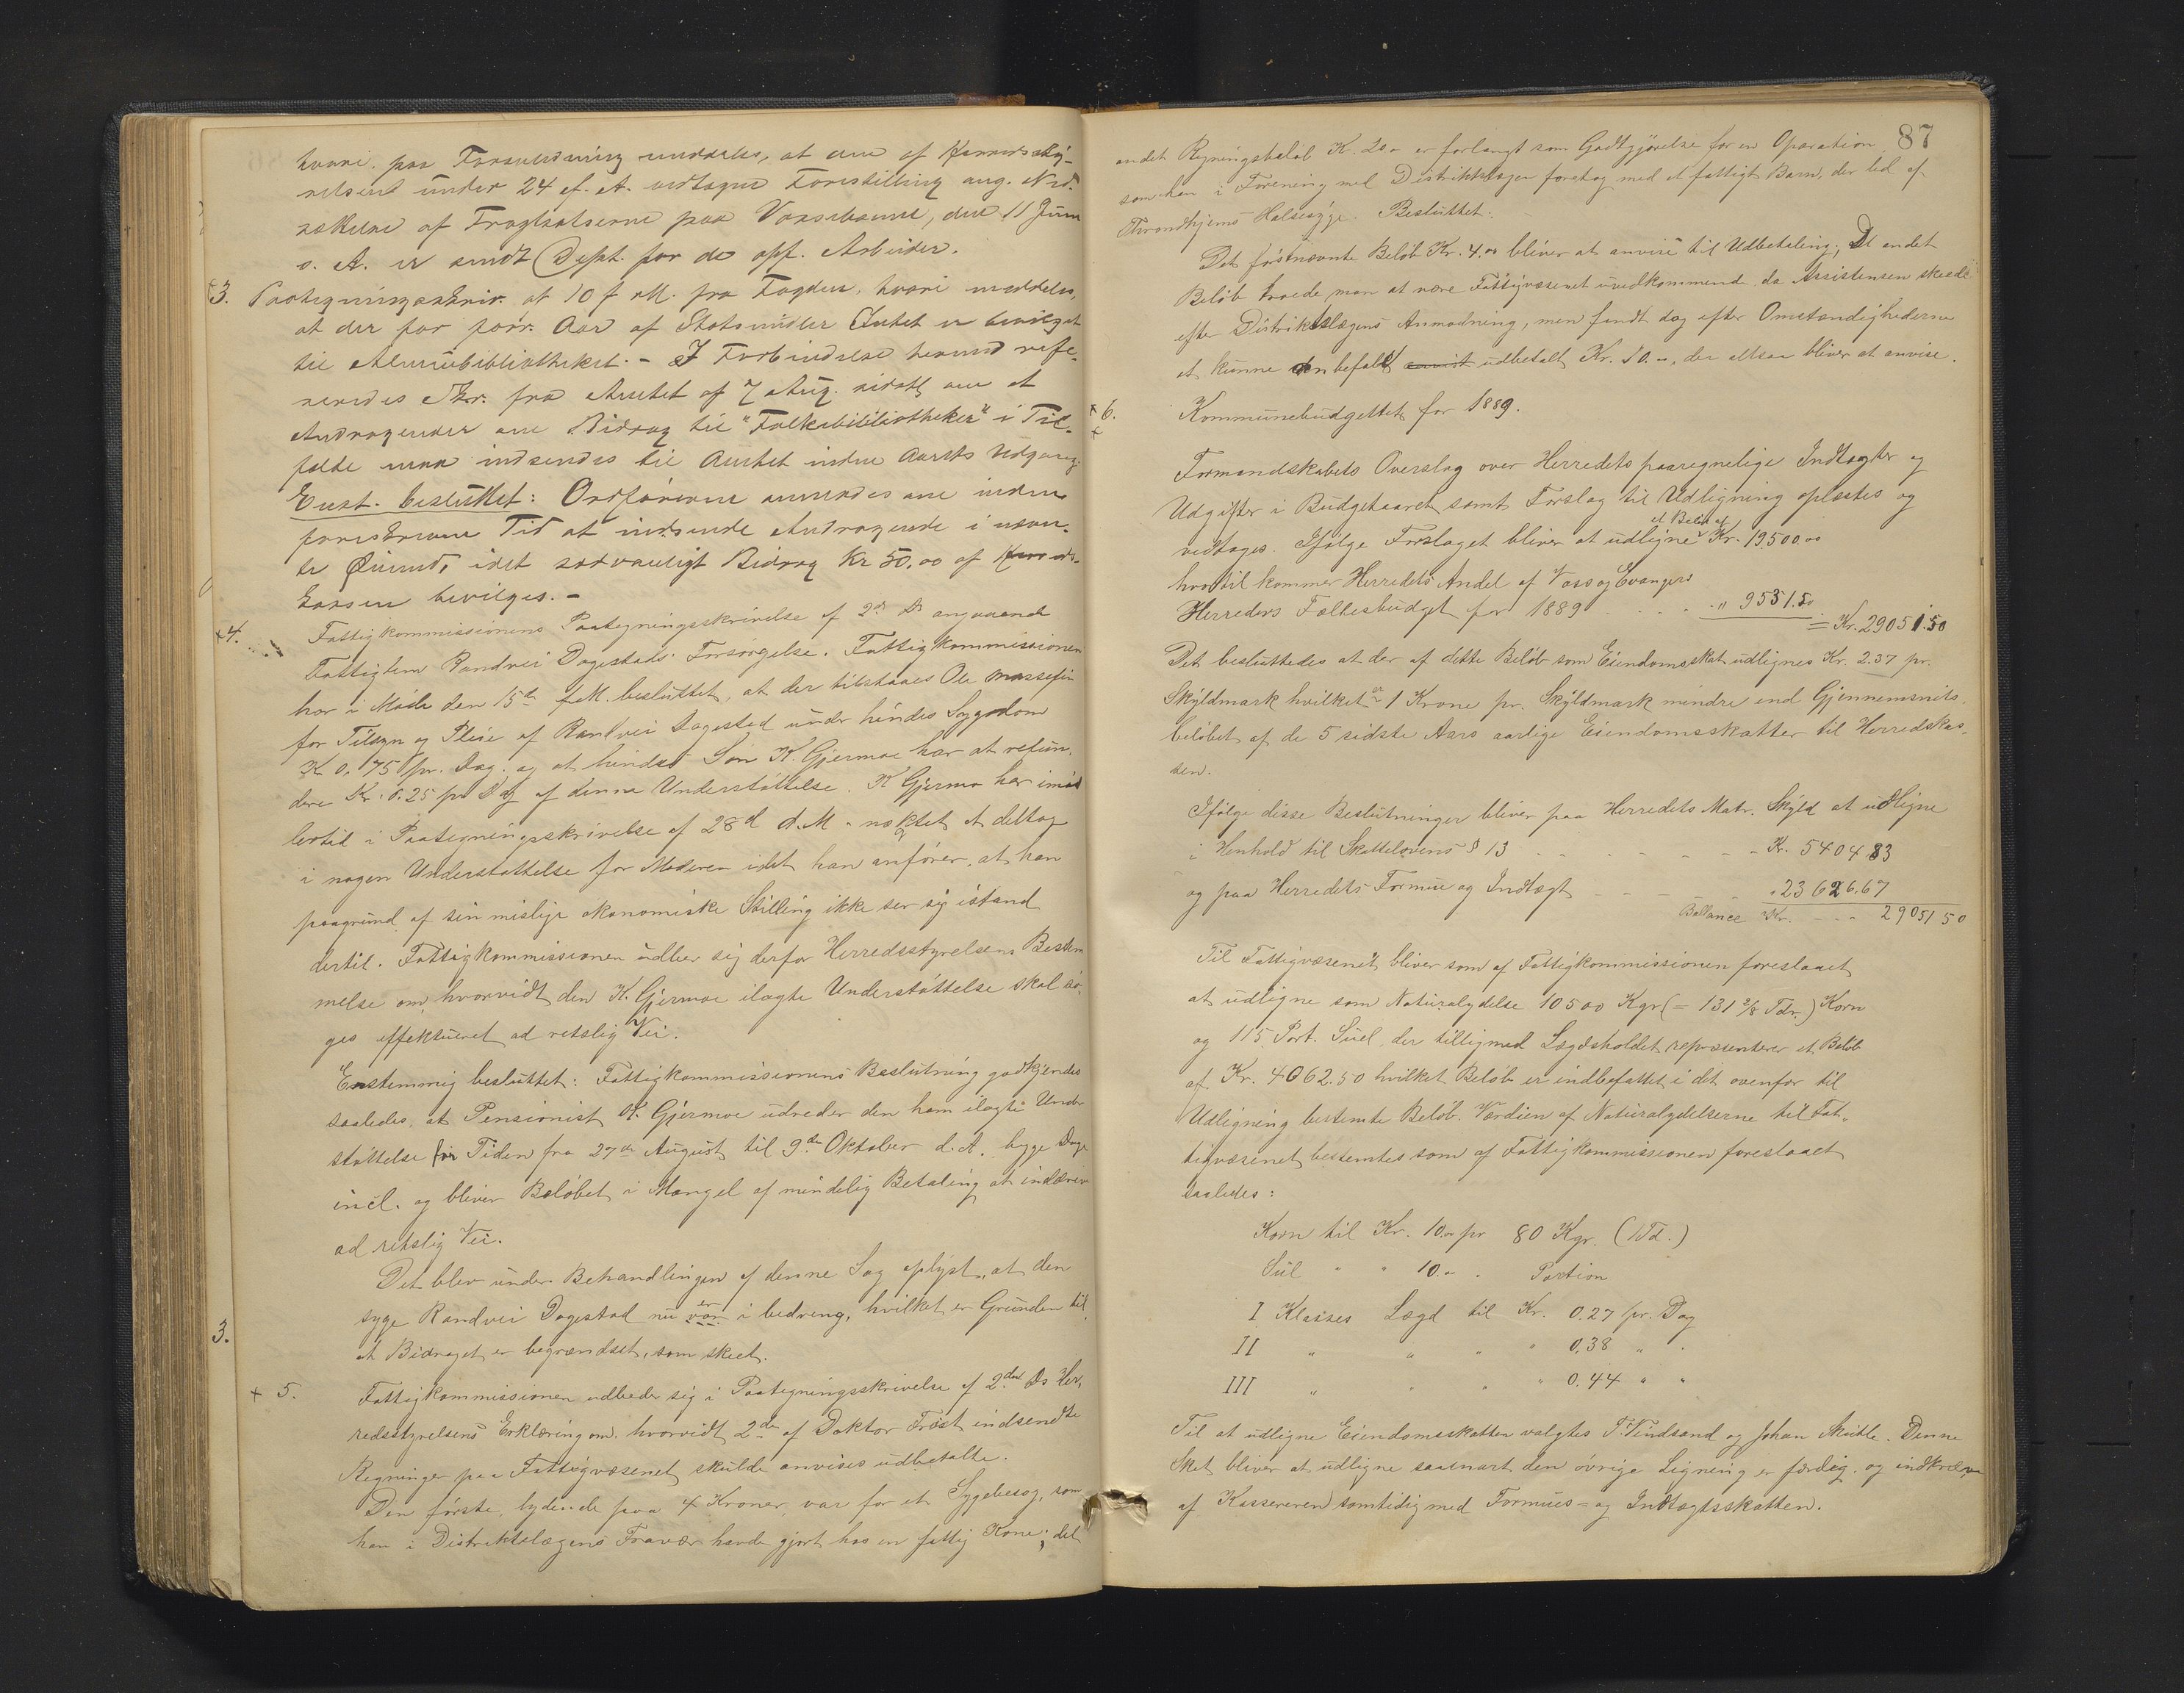 hvori paa Foranledning meddeles, at den af Herredssty-
relsen under 24 f. A. vedtagne Forestilling ang. Ned-
sættelse af Fragtsatserne paa Vossebanen, den 11 Juni
s. A. er sendt Dept. for de off. Arbeider.
3. Paategningsskriv. af 10 f. M. fra Fogden, hvori meddeles,
at der for forr. Aar af Statsmidler Intet er bevilget
til Almuebibliotheket. – I Forbindelse hermed refe-
reredes Skr. fra Amtet af 7 Aug. sidstl. om at
Andragender om Bidrag til "Folkebibliotheker" i Til-
fælde maa indsendes til Amtet inden Aarets Udgang.
Enst. besluttet: Ordføreren anmodes om inden
foreskreven Tid at indsende Andragende i nævn-
te Øiemed, idet sædvanligt Bidrag Kr 50,00 af Herreds-
kassen bevilges. –
4. Fattigkommissionens Paategningsskrivelse af 2den Ds angaaende
Fattiglem Randvei Dagestads Forsørgelse. Fattigkommissionen
har i Møde den 15de f. M. besluttet, at der tilstaaes Ole
for Tilsyn og Pleie af Randvei Dagestad under hendes Sygdom
Kr 0.75 pr. Dag, og at hendes Søn K. Gjermoe har at refun-
dere Kr. 0.25 pr Dag af denne Understøttelse. K Gjermo har imid-
lertid i Paategningsskrivelse af 28d d. M. nægtet at deltage
i nogen Understøttelse for Moderen idet han anfører, at han
paagrund af sin mislige økonomiske Stilling ikke ser sig istand
dertil. Fattigkommissionen udber sig derfor Herredsstyrelsens Bestem-
melse om, hvorvidt den K. Gjermoe ilagte Understøttelse skal sø-
ges effektueret ad retslig Vei.
Enstemmig besluttet: Fattigkommissionens Beslutning godkjendes
saaledes, at Pensionist K. Gjermoe udreder den ham ilagte Under-
støttelse for Tiden fra 27de August til 9de Oktober d. A. begge Dage
incl. og bliver Beløbet i Mangel af mindelig Betaling at inddrive
ad retslig Vei.
Det blev under Behandlingen af denne Sag oplyst, at den
syge Randvei Dagestad nu var er i bedring, hvilket er Grunden til
at Bidraget er begrændset, som skeet.
3.
5. Fattigkommissionen udbeder sig i Paategningsskrivelse af 2den Ds Her-
redsstyrelsens Erklæring om, hvorvidt 2de af Doktor Frost indsendte
Regninger paa Fattigvæsenet skulde anvises udbetalte.
Den første, lydende paa 4 Kroner, var for et Sygebesøg, som
han i Distriktslægens Fravær havde gjort hos en fattig Kone; det
87
andet Regningsbeløb K. 20– er forlangt som Godtgjørelse for en Operation
som han i Forening med Distriktslægen foretog med et fattigt Barn, der led af
Throndhjems Halssyge. Besluttet:
Det førstnævnte Beløb Kr. 4.00 bliver at anvise til Udbetaling; Det andet
Beløb troede man at være Fattigvæsenet uvedkommende da Assistensen skeede
efter Distriktslægens Anmodning, men fandt dog efter Omstændighederne
at kunne anbefalet udbetalt Kr. 10.–, der altsaa bliver at anvise.
6. Kommunebudgettet for 1889.
Formandskabets Overslag over Herredets paaregnelige Indtægter og
Udgifter i Budgetaaret samt Forslag til Udligning oplæstes og
vedtages. Ifølge Forslaget bliver at udligne et Beløb af Kr. 19500.00
hvortil kommer Herredets Andel af Voss og Evangers
Herreders Fællesbudget for 1889 . . . . " 9551.50 = Kr. 29051.50
Det besluttedes at der af dette Beløb som Eiendomsskat udlignes Kr. 2.37 pr.
Skyldmark hvilket er 1 Krone pr. Skyldmark mindre end Gjennemsnits-
beløbet af de 5 sidste Aars aarlige Eiendomsskatter til Herredskas-
sen.
Ifølge disse Beslutninger bliver paa Herredets Matr. Skyld at udligne
i Henhold til Skattelovens § 13 – – – – – – Kr. 5404 83
og paa Herredets Formue og Indtægt – – – – " 23626.67
Ballance Kr. – – – 29051 50
Til Fattigvæsenet bliver som af Fattigkommissionen foreslaaet
at udligne som Naturalydelse 10500 Kgr (= 131 2/8 Tdr.) Korn
og 115 Port. Suel, der tilligemed Lægdsholdet repræsenterer et Beløb
af Kr. 4062.50 hvilket Beløb er indbefattet i det ovenfor til
Udligning bestemte Beløb. Værdien af Naturalydelserne til Fat-
tigvæsenet bestemtes som af Fattigkommissionen foreslaaet
saaledes:
Korn til Kr. 10.00 pr 80 Kgr. (1 Td.)
Suel " " 10.– " Portion
I Klasses Lægd til Kr. 0.27 pr. Dag
II " " " " 0.38 " "
III " " " " 0.44 " "
Til at udligne Eiendomsskatten valgtes T. Vindsand og Johan Skutle. Denne
Skat bliver at udligne saasnart den øvrige Ligning er færdig, og indkræves
af Kassereren samtidig med Formues- og Indtægtsskatten.